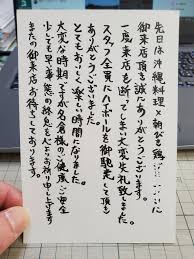 先日は沖縄料理×朝びき鶏
御来店頂き誠にありがとうございます。
一度来店を断ってしまい大変失礼致しました。
スタッフ全員にハイボールを御馳走して頂き
ありがとうございました。
とてもおいしく楽しい時間になりました。
大変な時期ですが名倉様のご健康、ご安全
少しでも早い事態の終息を心よりお祈り申し上げます
またの御来店お待ちしております。